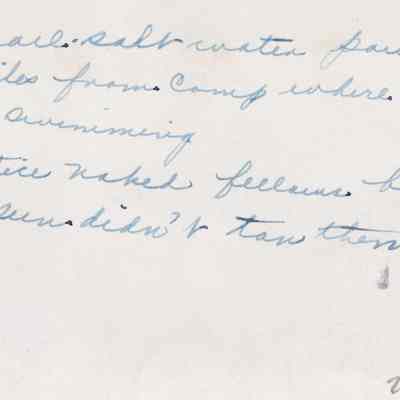 salt water
from camp where
swimming
naked fellows b
sun didn't tan them